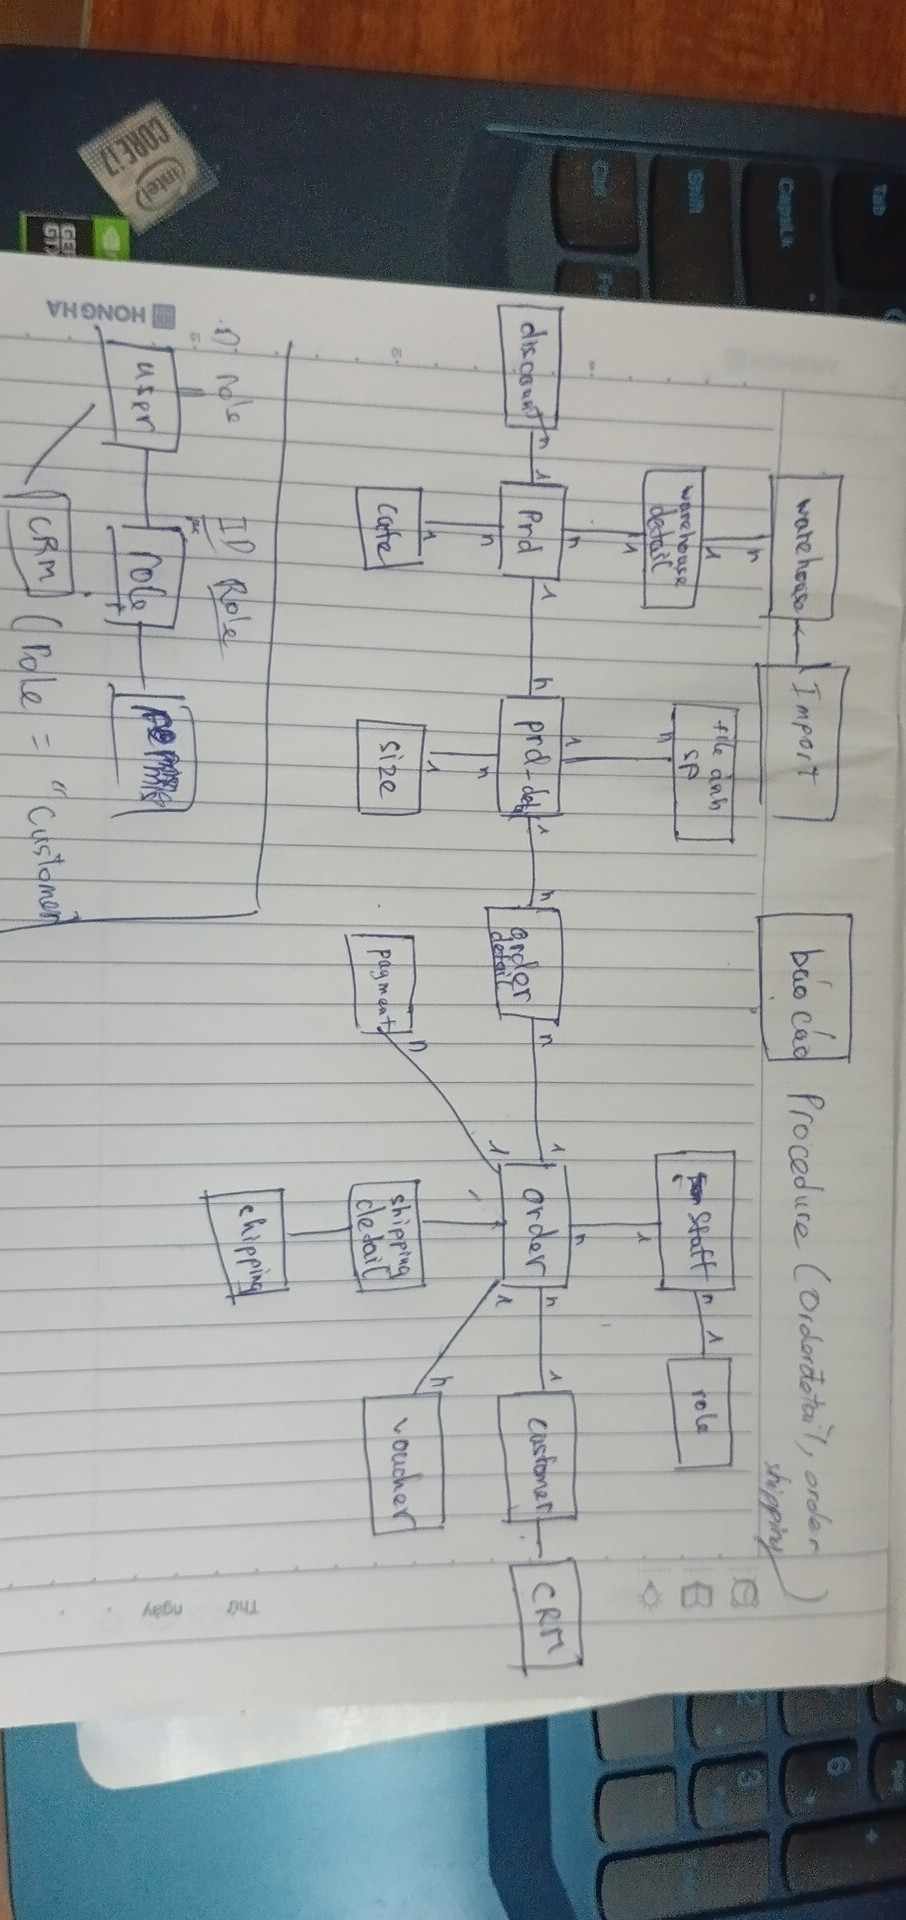 Tab
CapsLk
Shift
Ctrl
Fn
6
2
3
warehouse
Import
báo cáo
Procedure (Orderdetail, order
shipping)
n
1
file ảnh
sp
n
warehouse
detail
1
n
Staff
n
1
role
1
discount
n
1
Prd
1
n
1
prd-deta
1
n
order
detail
n
1
n
order
n
1
customer
CRM
n
1
cate
n
1
size
1
n
payment
shipping
detail
1
n
voucher
shipping
n role
ID Role
user
role
permis
CRM
(role = "Customer
HONGHA
Thứ ngày
intel
CORE i7
GTX